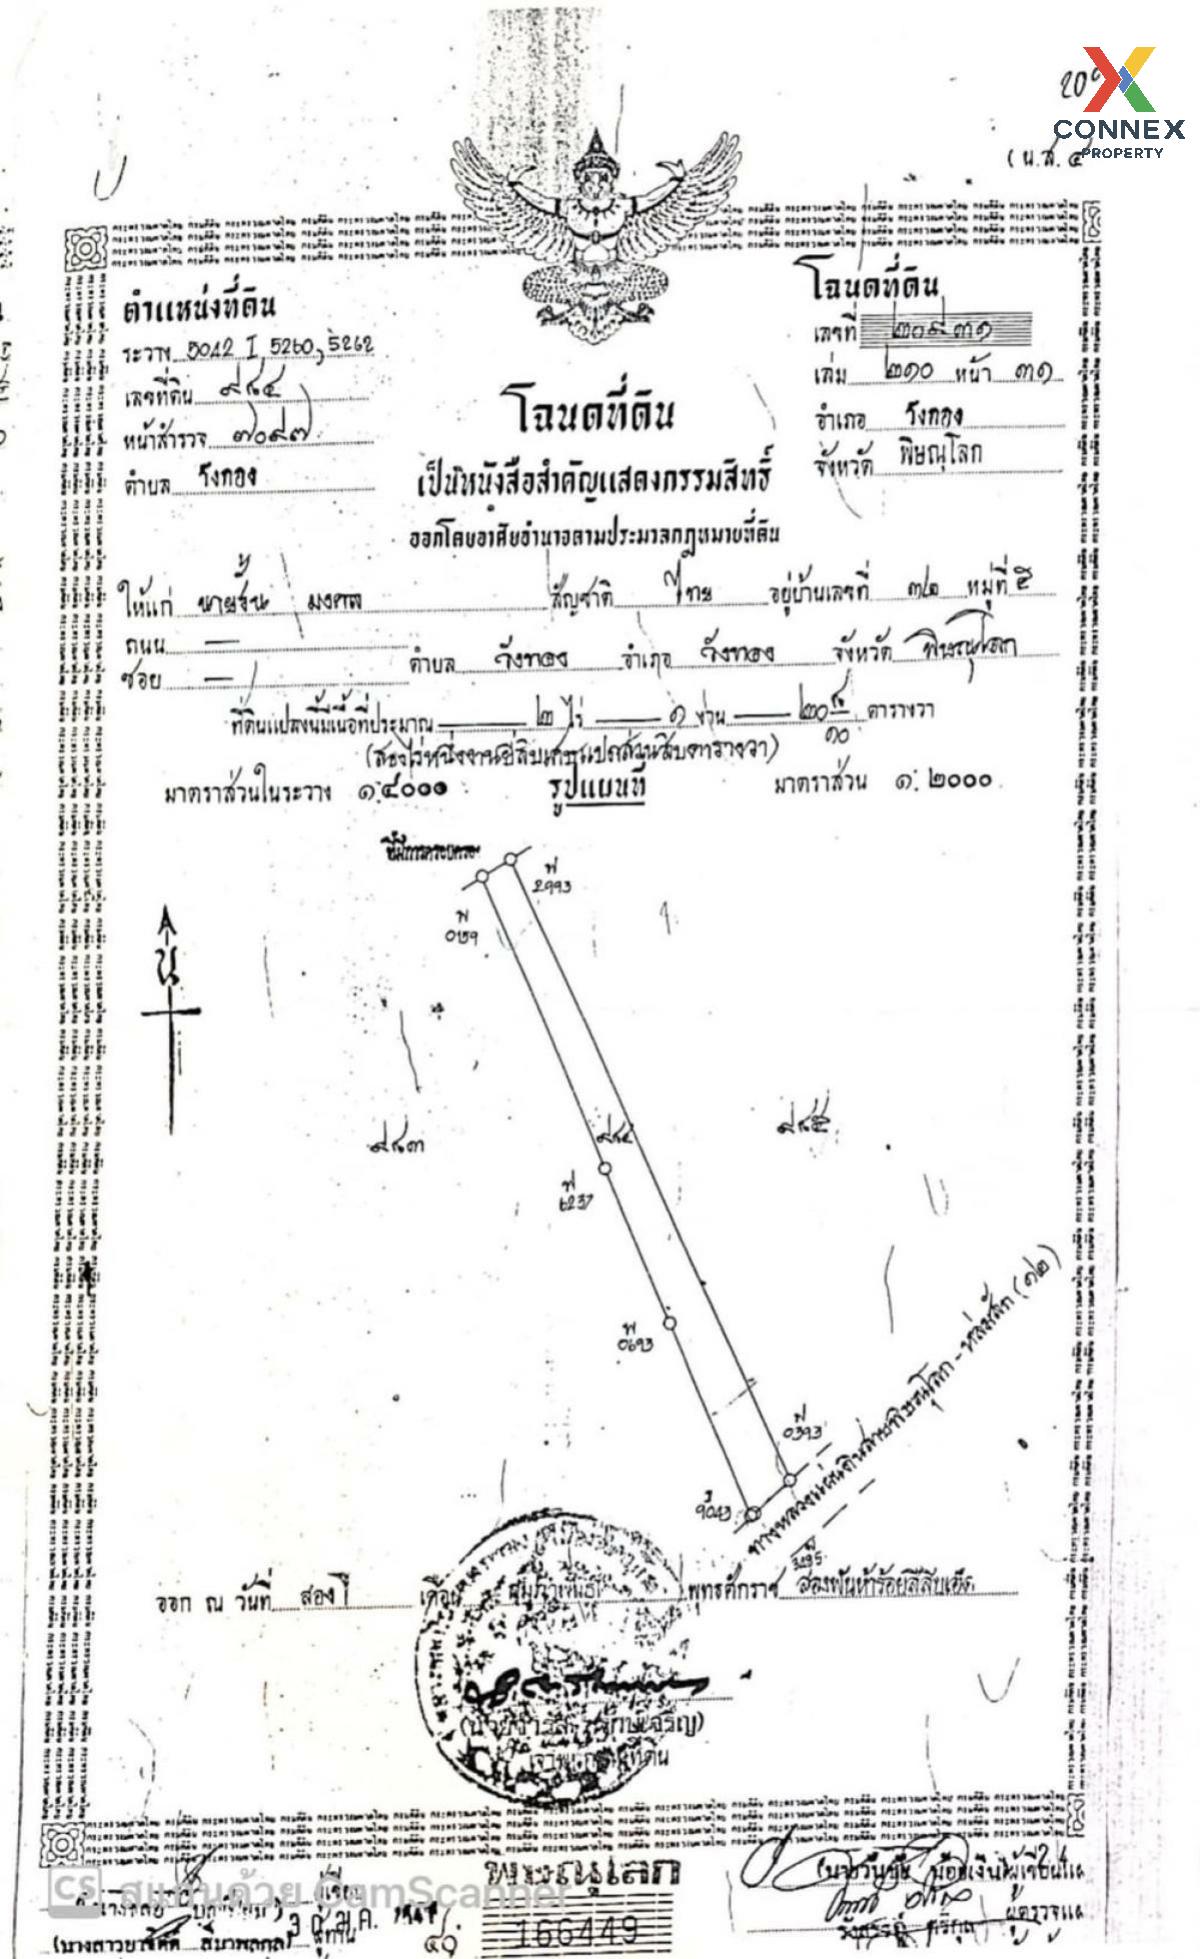 CONNEX
PROPERTY
(น.ส. ๔
ตำแหน่งที่ดิน
ระวาง 5042 I 5260, 5262
เลขที่ดิน ๙๘๔
หน้าสำรวจ ๗๐๙๗
ตำบล วังทอง
โฉนดที่ดิน
เลขที่ ๒๐๙๓๑
เล่ม ๒๑๐ หน้า ๓๑
อำเภอ วังทอง
จังหวัด พิษณุโลก
โฉนดที่ดิน
เป็นหนังสือสำคัญแสดงกรรมสิทธิ์
ออกโดยอาศัยอำนาจตามประมวลกฎหมายที่ดิน
ให้แก่ มงคล สัญชาติ ไทย อยู่บ้านเลขที่ ๓๒ หมู่ที่ ๕
ถนน —
ซอย — ตำบล วังทอง อำเภอ วังทอง จังหวัด พิษณุโลก
ที่ดินแปลงนี้มีเนื้อที่ประมาณ ๒ ไร่ ๑ งาน ๒๐ ๘/๑๐ ตารางวา
(สองไร่หนึ่งงานยี่สิบเศษแปดส่วนสิบตารางวา)
มาตราส่วนในระวาง ๑:๔๐๐๐ รูปแผนที่ มาตราส่วน ๑:๒๐๐๐
ที่มีการครอบครอง
พ
2993
พ
0159
น
๙๘๓
๙๘๔
๙๘๕
พ
6237
พ
0693
พ
0393
9043
3195
ทางหลวงแผ่นดินสายพิษณุโลก - หล่มสัก (๑๒)
ออก ณ วันที่ สอง เดือน กุมภาพันธ์ พุทธศักราช สองพันห้าร้อยสี่สิบเอ็ด
เจ้าพนักงานที่ดิน
CS สแกนด้วย CamScanner
ผู้เขียน
ผู้ทาน
พิษณุโลก
166449
ผู้เขียนแผ
ผู้ตรวจแผ